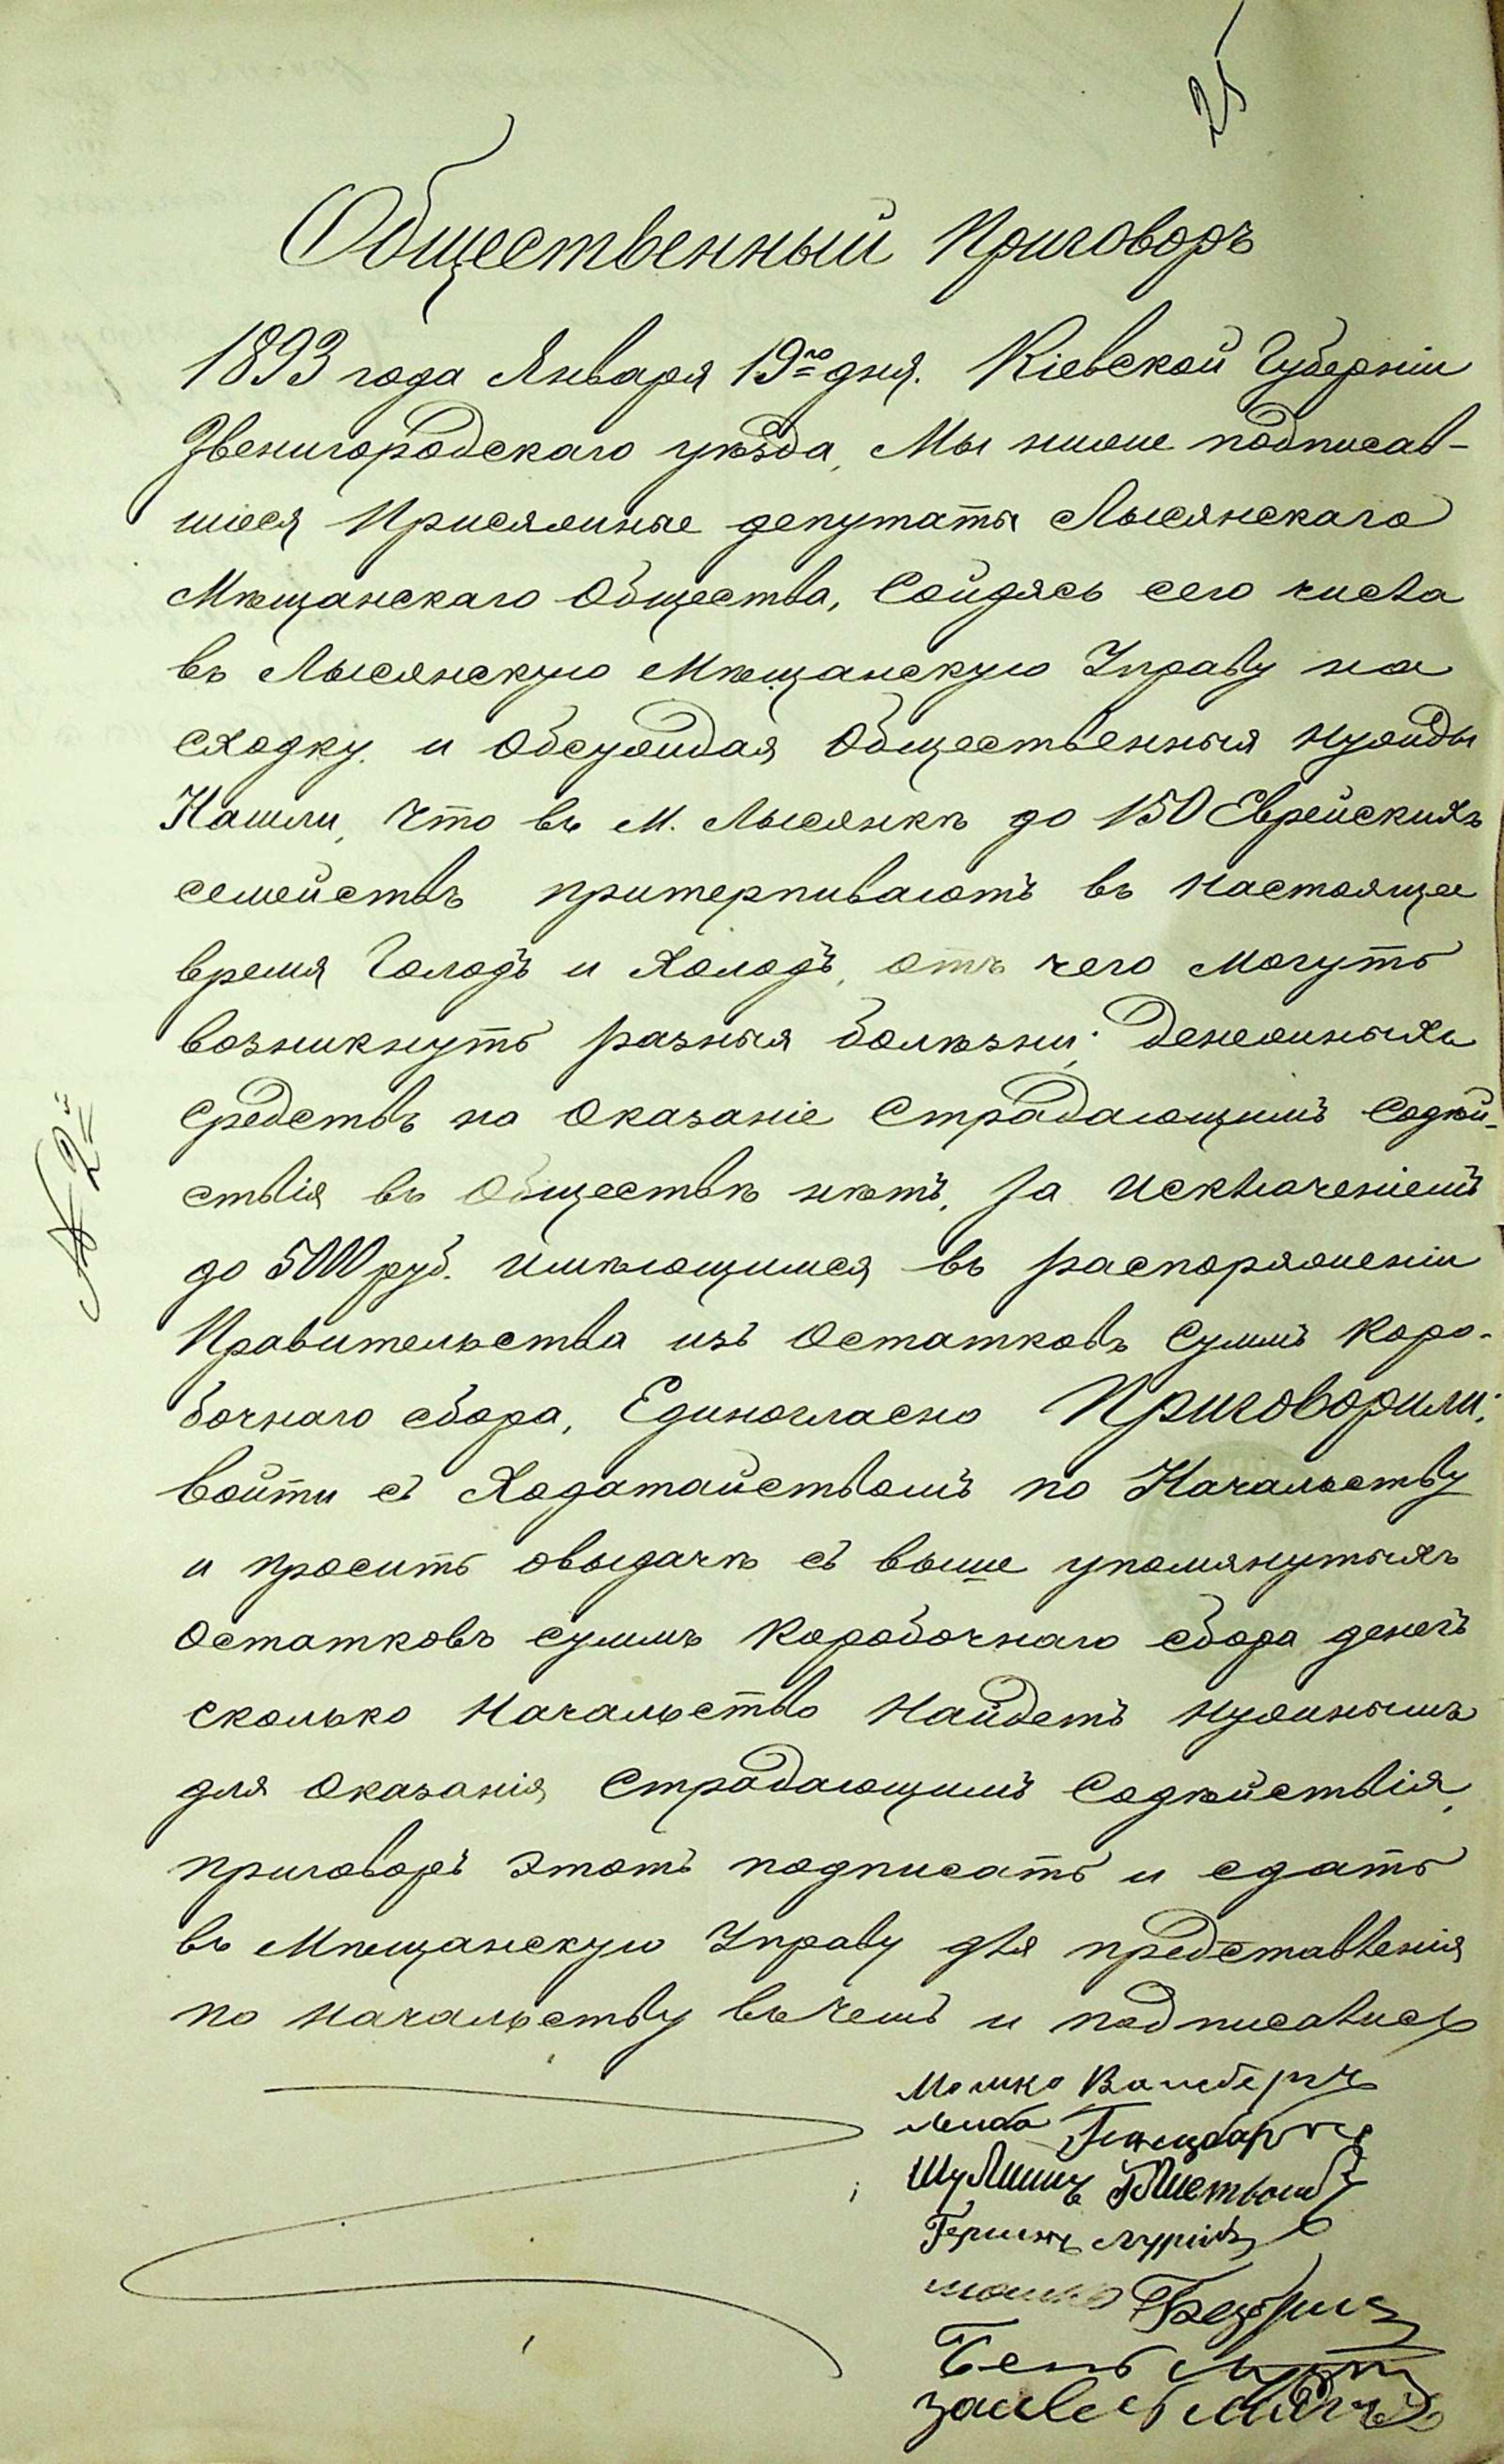 25
Общественный Приговоръ
1893 года Января 19го дня. Кіевской Губерніи
Звенигородскаго уѣзда, Мы ниже подписав-
шіеся Присяжные депутаты Лысянскаго
Мѣщанскаго Общества, Сойдясь сего числа
въ Лысянскую Мѣщанскую Управу на
сходку. и Обсуждая Общественныя нужды
Нашли, что въ М. Лысянкѣ до 150 Еврейскихъ
семействъ притерпиваютъ въ настоящее
время Голодъ и Холодъ, отъ чего могутъ
возникнуть разныя болѣзни; денежныхъ
средствъ на Оказаніе Страдающимъ Содѣй-
ствія въ Обществѣ нѣтъ, За Исключеніемъ
до 5000 руб. имѣющимся въ распоряженіи
Правительства изъ Остатковъ Суммъ Коро-
бочнаго сбора, Единогласно Приговорили:
войти съ Ходатайствомъ по Начальству
и просить овыдачѣ съ выше упомянутыхъ
Остатковъ суммъ Коробочнаго сбора денегъ
сколько Начальство Найдетъ Нужнымъ
для Оказанія Страдающимъ Содѣйствія,
приговоръ этотъ подписать и сдать
въ Мѣщанскую Управу для представленія
по Начальству въ чемъ и подписались
№ 2й
Мошко Вайсбергъ
Лейба
Мошко
Бень